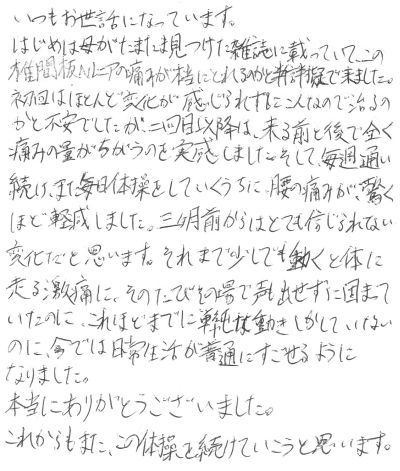 いつもお世話になっています。
はじめは母がたまたま見つけた雑誌に載っていて、この
椎間板ヘルニアの痛みが本当にとれるのかと半信半疑で来ました。
初回はほとんど変化が感じられずにこんなので治るの
かと不安でしたが二回目以降は、来る前と後で全く
痛みの量がちがうのを実感しました。そして、毎週通い
続け、また毎日体操をしていくうちに、腰の痛みが、驚く
ほど軽減しました。三ヶ月前からはとても信じられない
変化だと思います。それまで少しでも動くと体に
走る激痛に、そのたびその場で声も出せずに固まて
いたのに、これほどまでに単純な動きしかしていない
のに、今では日常生活が普通にすごせるように
なりました。
本当にありがとうございました。
これからもまた、この体操を続けていこうと思います。